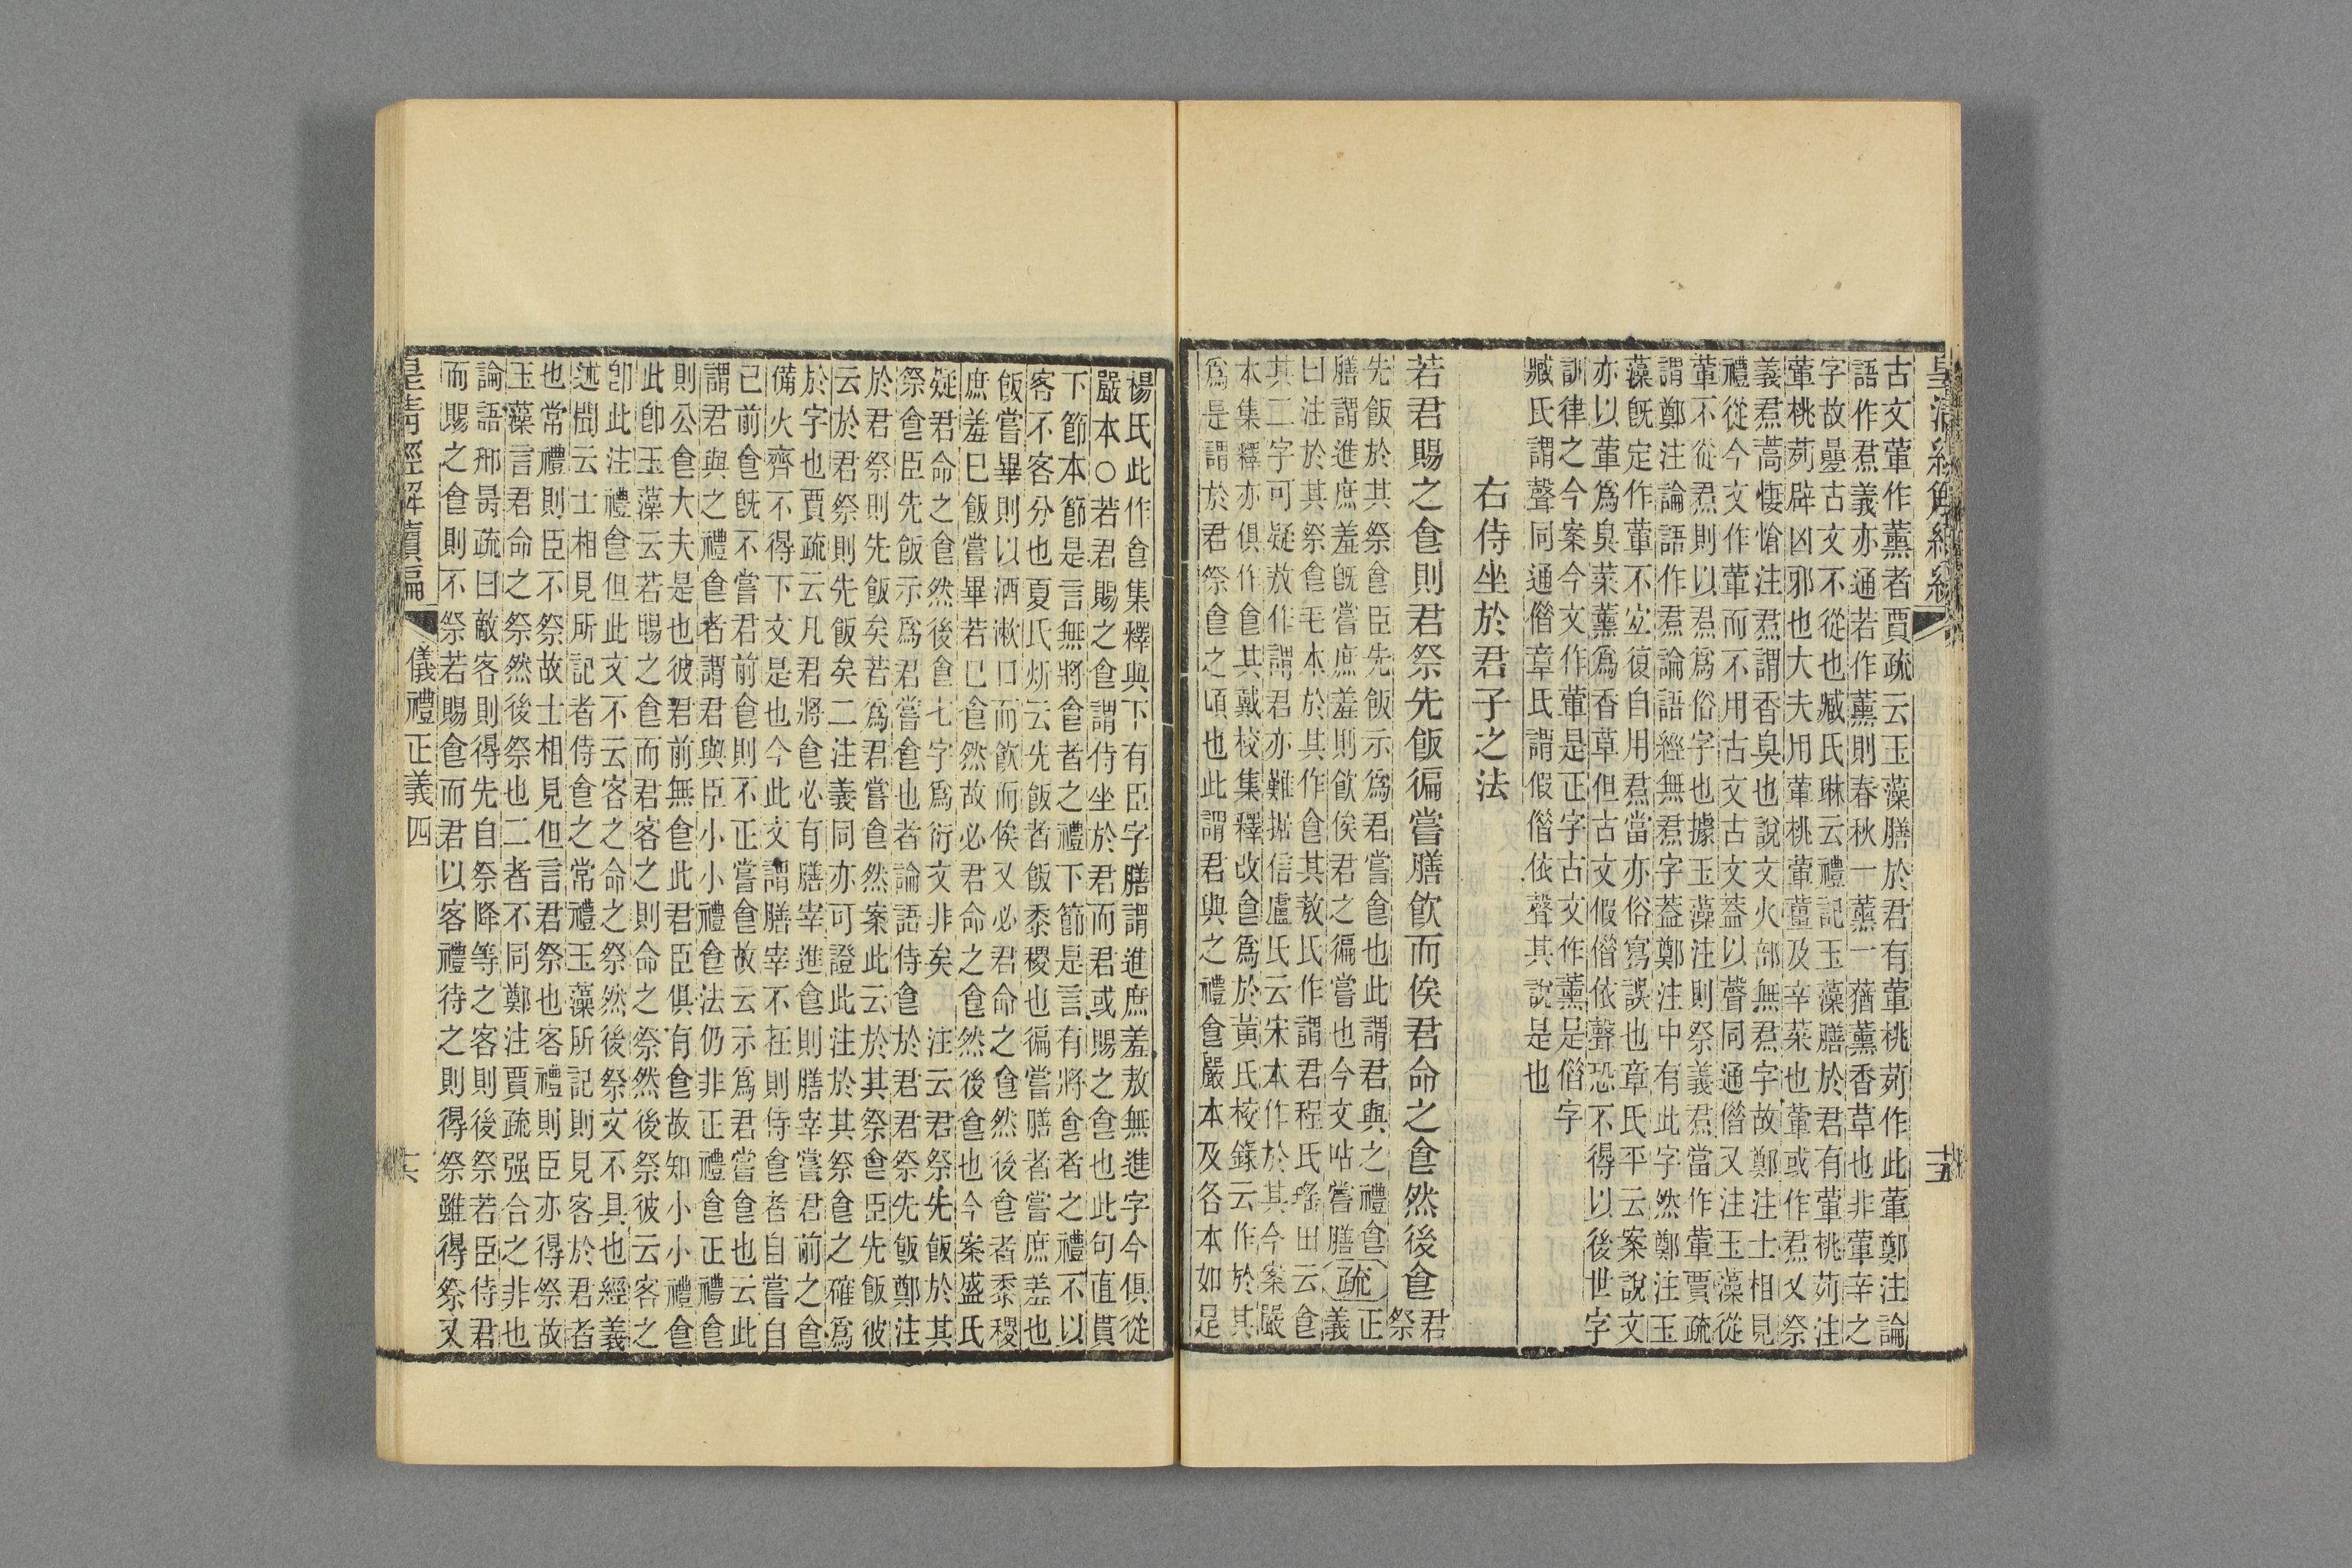 皇清經解續編
十五
古文葷作薰者賈疏云玉藻膳於君有葷桃茢作此葷鄭注論
語作焄義亦通若作薰則春秋一薰一蕕薰香草也非葷辛之
字故疊古文不從也臧氏琳云禮記玉藻膳於君有葷桃茢注
葷桃茢辟凶邪也大夫用葷桃葷薑及辛菜也葷或作焄又祭
義焄蒿悽愴注焄謂香臭也說文火部無焄字故鄭注士相見
禮從今文作葷而不用古文古文葢以聲同通僣又注玉藻從
葷不從焄則以焄爲俗字也據玉藻注則祭義焄當作葷賈疏
謂鄭注論語作焄論語經無焄字葢鄭注中有此字然鄭注玉
藻旣定作葷不宐復自用焄當亦俗寫誤也章氏平云案說文
亦以葷爲臭菜薰爲香草但古文假僣依聲恐不得以後世字
訓律之今案今文作葷是正字古文作薰是僣字
臧氏謂聲同通僣章氏謂假僣依聲其說是也
右侍坐於君子之法
若君賜之食則君祭先飯徧嘗膳飮而俟君命之食然後食
君
祭
先飯於其祭食臣先飯示爲君嘗食也此謂君與之禮食
膳謂進庶羞旣嘗庶羞則飮俟君之徧嘗也今文呫嘗膳
疏
正
義
曰注於其祭食毛本於其作食其敖氏作謂君程氏瑤田云食
其二字可疑敖作謂君亦難據信盧氏云宋本作於其今案嚴
本集釋亦俱作食其戴校集釋改食爲於黃氏校錄云作於其
爲是謂於君祭食之頃也此謂君與之禮食嚴本及各本如是
楊氏此作食集釋與下有臣字膳謂進庶羞敖無進字今俱從
嚴本○若君賜之食謂侍坐於君而君或賜之食也此句直貫
下節本節是言無將食者之禮下節是言有將食者之禮不以
客不客分也夏氏炘云先飯者飯黍稷也徧嘗膳者嘗庶羞也
飯嘗畢則以酒漱口而飮而俟又必君命之食然後食者黍稷
庶羞巳飯嘗畢若巳食然故必君命之食然後食也今案盛氏
疑君命之食然後食七字爲衍文非矣　注云君祭先飯於其
祭食臣先飯示爲君嘗食也者論語侍食於君君祭先飯鄭注
於君祭則先飯矣若爲君嘗食然案此云於其祭食臣先飯彼
云於君祭則先飯矣二注義同亦可證此注於其祭食之確爲
於字也賈疏云凡君將食必有膳宰進食則膳宰嘗君前之食
備火齊不得下文是也今此文謂膳宰不在則侍食者自嘗自
已前食旣不嘗君前食則不正嘗食故云示爲君嘗食也云此
謂君與之禮食者謂君與臣小小禮食法仍非正禮食正禮食
則公食大夫是也彼君前無食此君臣俱有食故知小小禮食
此卽玉藻云若賜之食而君客之則命之祭然後祭彼云客之
卽此注禮食但此文不云客之命之祭然後祭文不具也經義
述聞云士相見所記者侍食之常禮玉藻所記則見客於君者
也常禮則臣不祭故士相見但言君祭也客禮則臣亦得祭故
玉藻言君命之祭然後祭也二者不同鄭注賈疏强合之非也
論語邢昺疏曰敵客則得先自祭降等之客則後祭若臣侍君
而賜之食則不祭若賜食而君以客禮待之則得祭雖得祭又
皇清經解續編
儀禮正義四